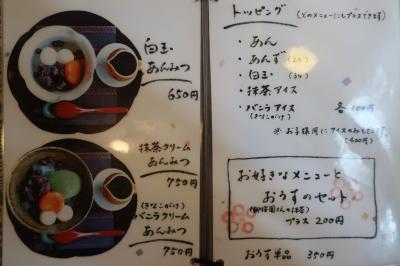 白玉
あんみつ
650円
抹茶クリーム
あんみつ
750円
(きなこがけ)
バニラクリーム
あんみつ
750円
トッピング (どのメニューにもプラスできます)
・あん
・あんず (2ケ)
・白玉 (3ケ)
・抹茶アイス
・バニラアイス 各100円
(きなこがけ)
※お子様用にアイスのみも
(400円)
お好きなメニューと
おうすのセット
プラス 200円
おうす単品 350円